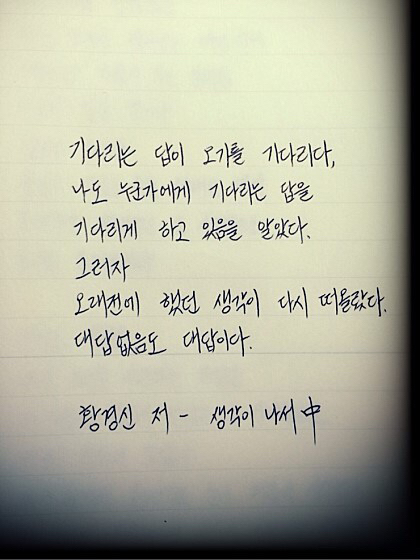 기다리는 답이 오기를 기다리다,
나도 누군가에게 기다리는 답을
기다리게 하고 있음을 알았다.
그러자
오래전에 했던 생각이 다시 떠올랐다.
대답없음도 대답이다.
황경신 저 - 생각이 나서 中